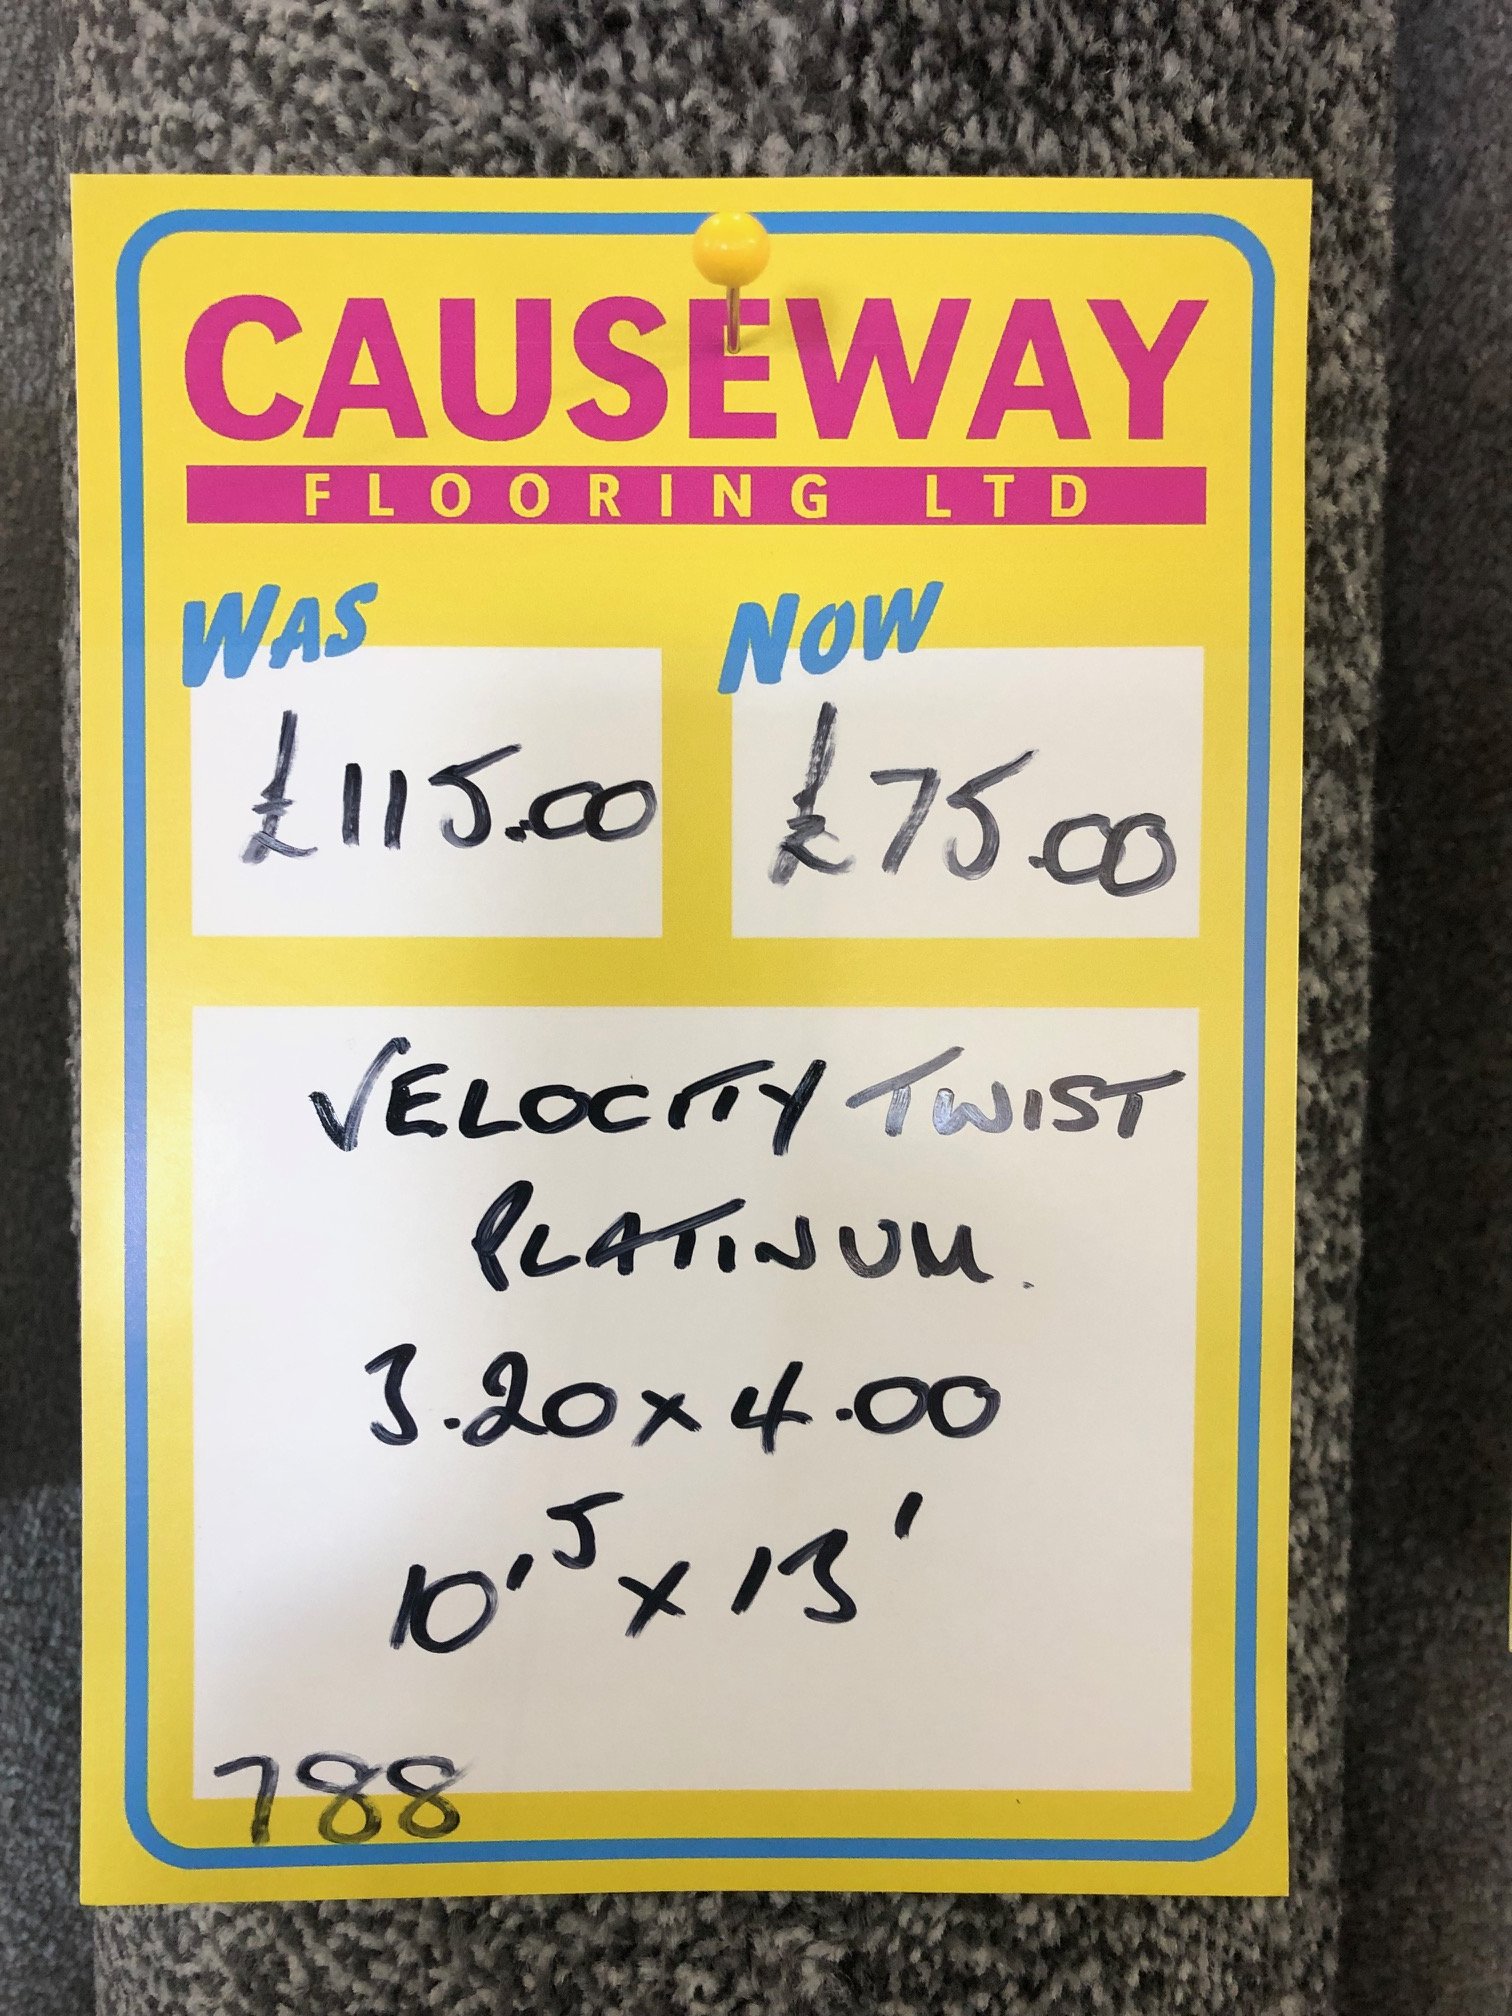 CAUSEWAY
FLOORING LTD
WAS NOW
£115.00 £75.00
VELOCITY TWIST
PLATINUM.
3.20 x 4.00
10'5 x 13'
788